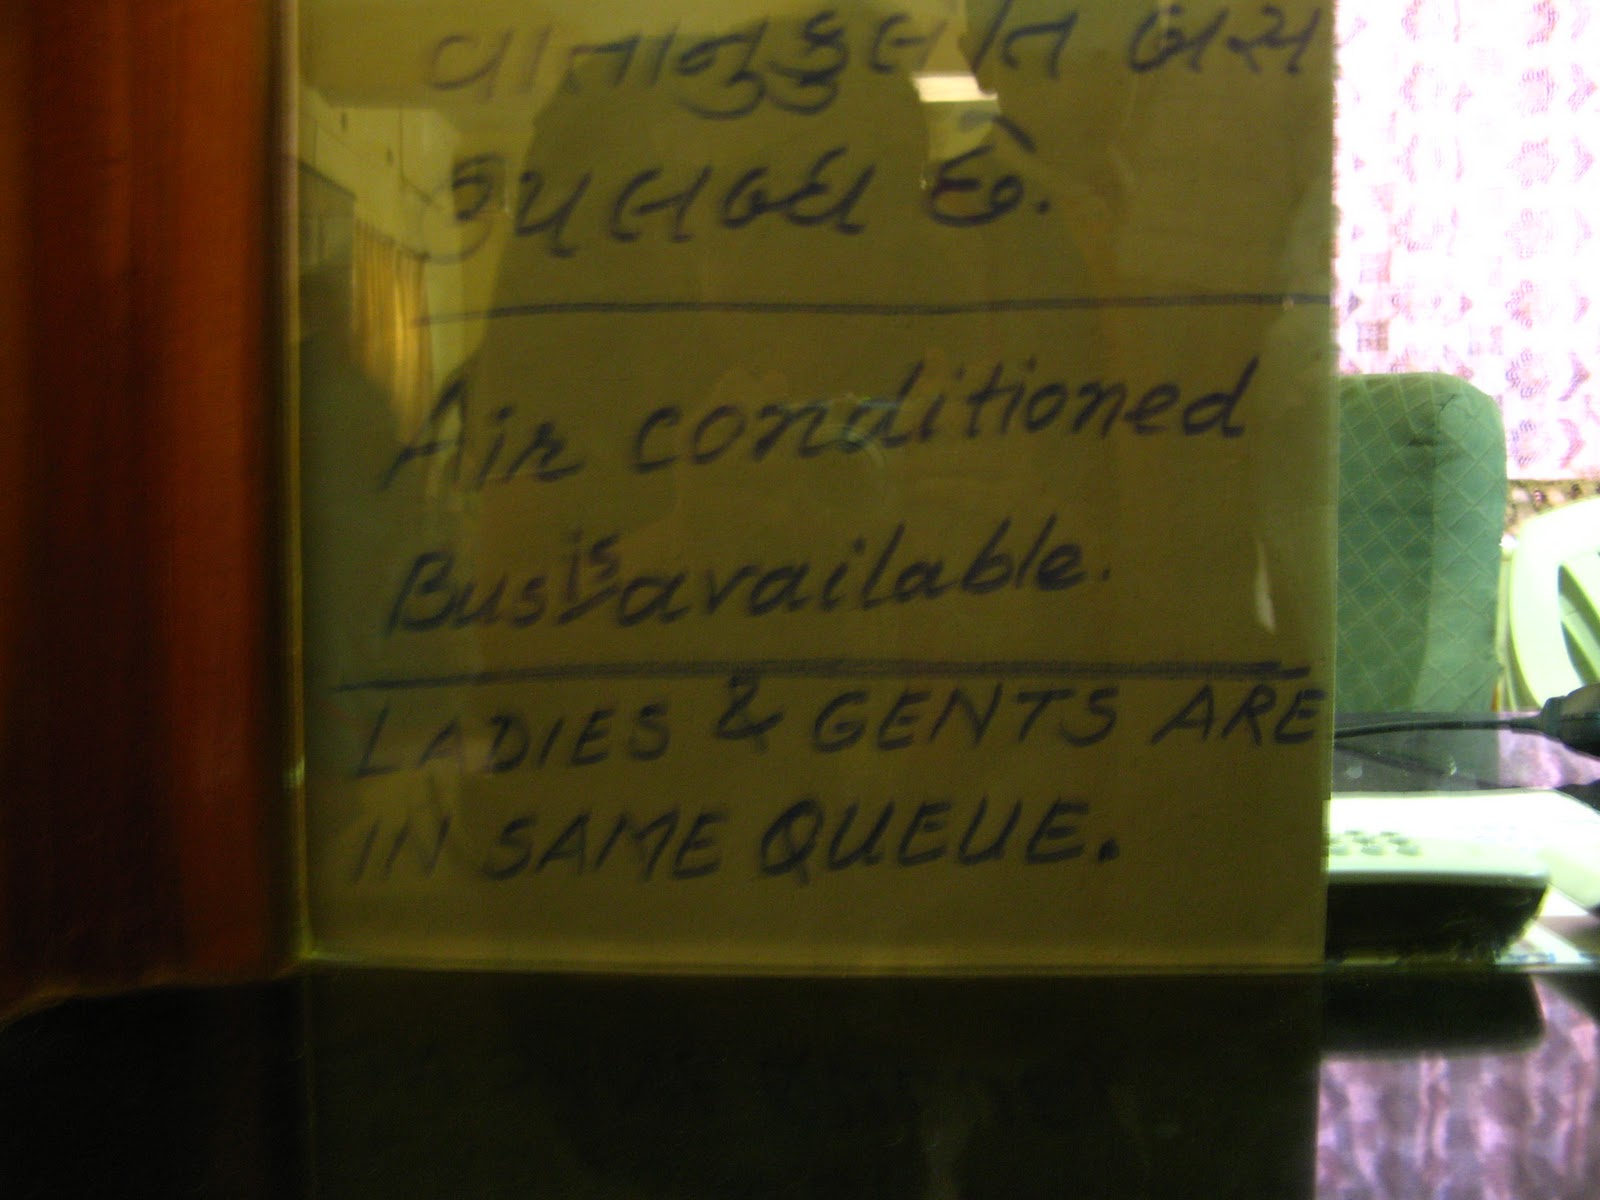 વાતાનુકુલિત બસ
ઉપલબ્ધ છે.
Air conditioned
Bus is available.
LADIES & GENTS ARE
IN SAME QUEUE.